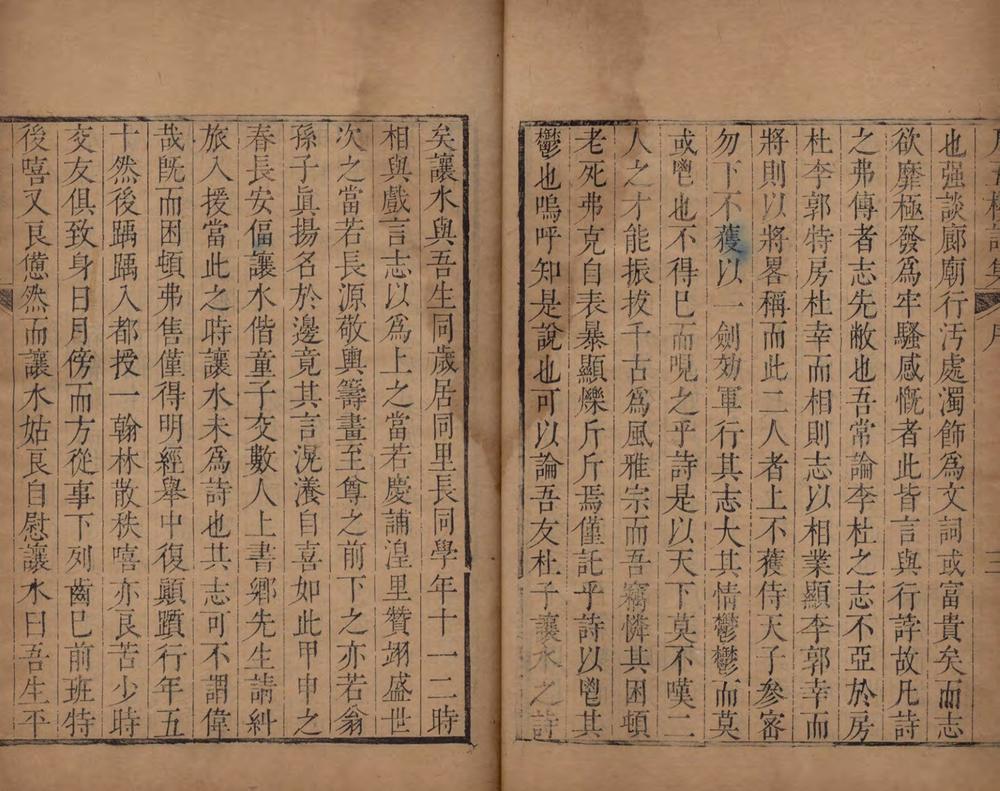 序
三
也强談廊廟行汚處濁飾爲文詞或富貴矣而志
欲靡極發爲牢騷感慨者此皆言與行誖故凡詩
之弗傳者志先敝也吾常論李杜之志不亞於房
杜李郭特房杜幸而相則志以相業顯李郭幸而
將則以將畧稱而此二人者上不獲侍天子參密
勿下不獲以一劍効軍行其志大其情鬱鬱而莫
或鬯也不得巳而晛之乎詩是以天下莫不嘆二
人之才能振拔千古爲風雅宗而吾竊憐其困頓
老死弗克自表暴顯爍斤斤焉僅託乎詩以鬯其
鬱也嗚呼知是說也可以論吾友杜子讓水之詩
矣讓水與吾生同歲居同里長同學年十一二時
相與戲言志以爲上之當若慶誧湟里贊翊盛世
次之當若長源敬輿籌畫至尊之前下之亦若翁
孫子眞揚名於邊竟其言滉瀁自喜如此甲申之
春長安偪讓水偕童子交數人上書鄉先生請糾
旅入援當此之時讓水未爲詩也其志可不謂偉
哉旣而困頓弗售僅得明經舉中復顚躓行年五
十然後踽踽入都授一翰林散秩嘻亦良苦少時
交友俱致身日月傍而方從事下列齒巳前班特
後嘻又良憊然而讓水姑良自慰讓水曰吾生平